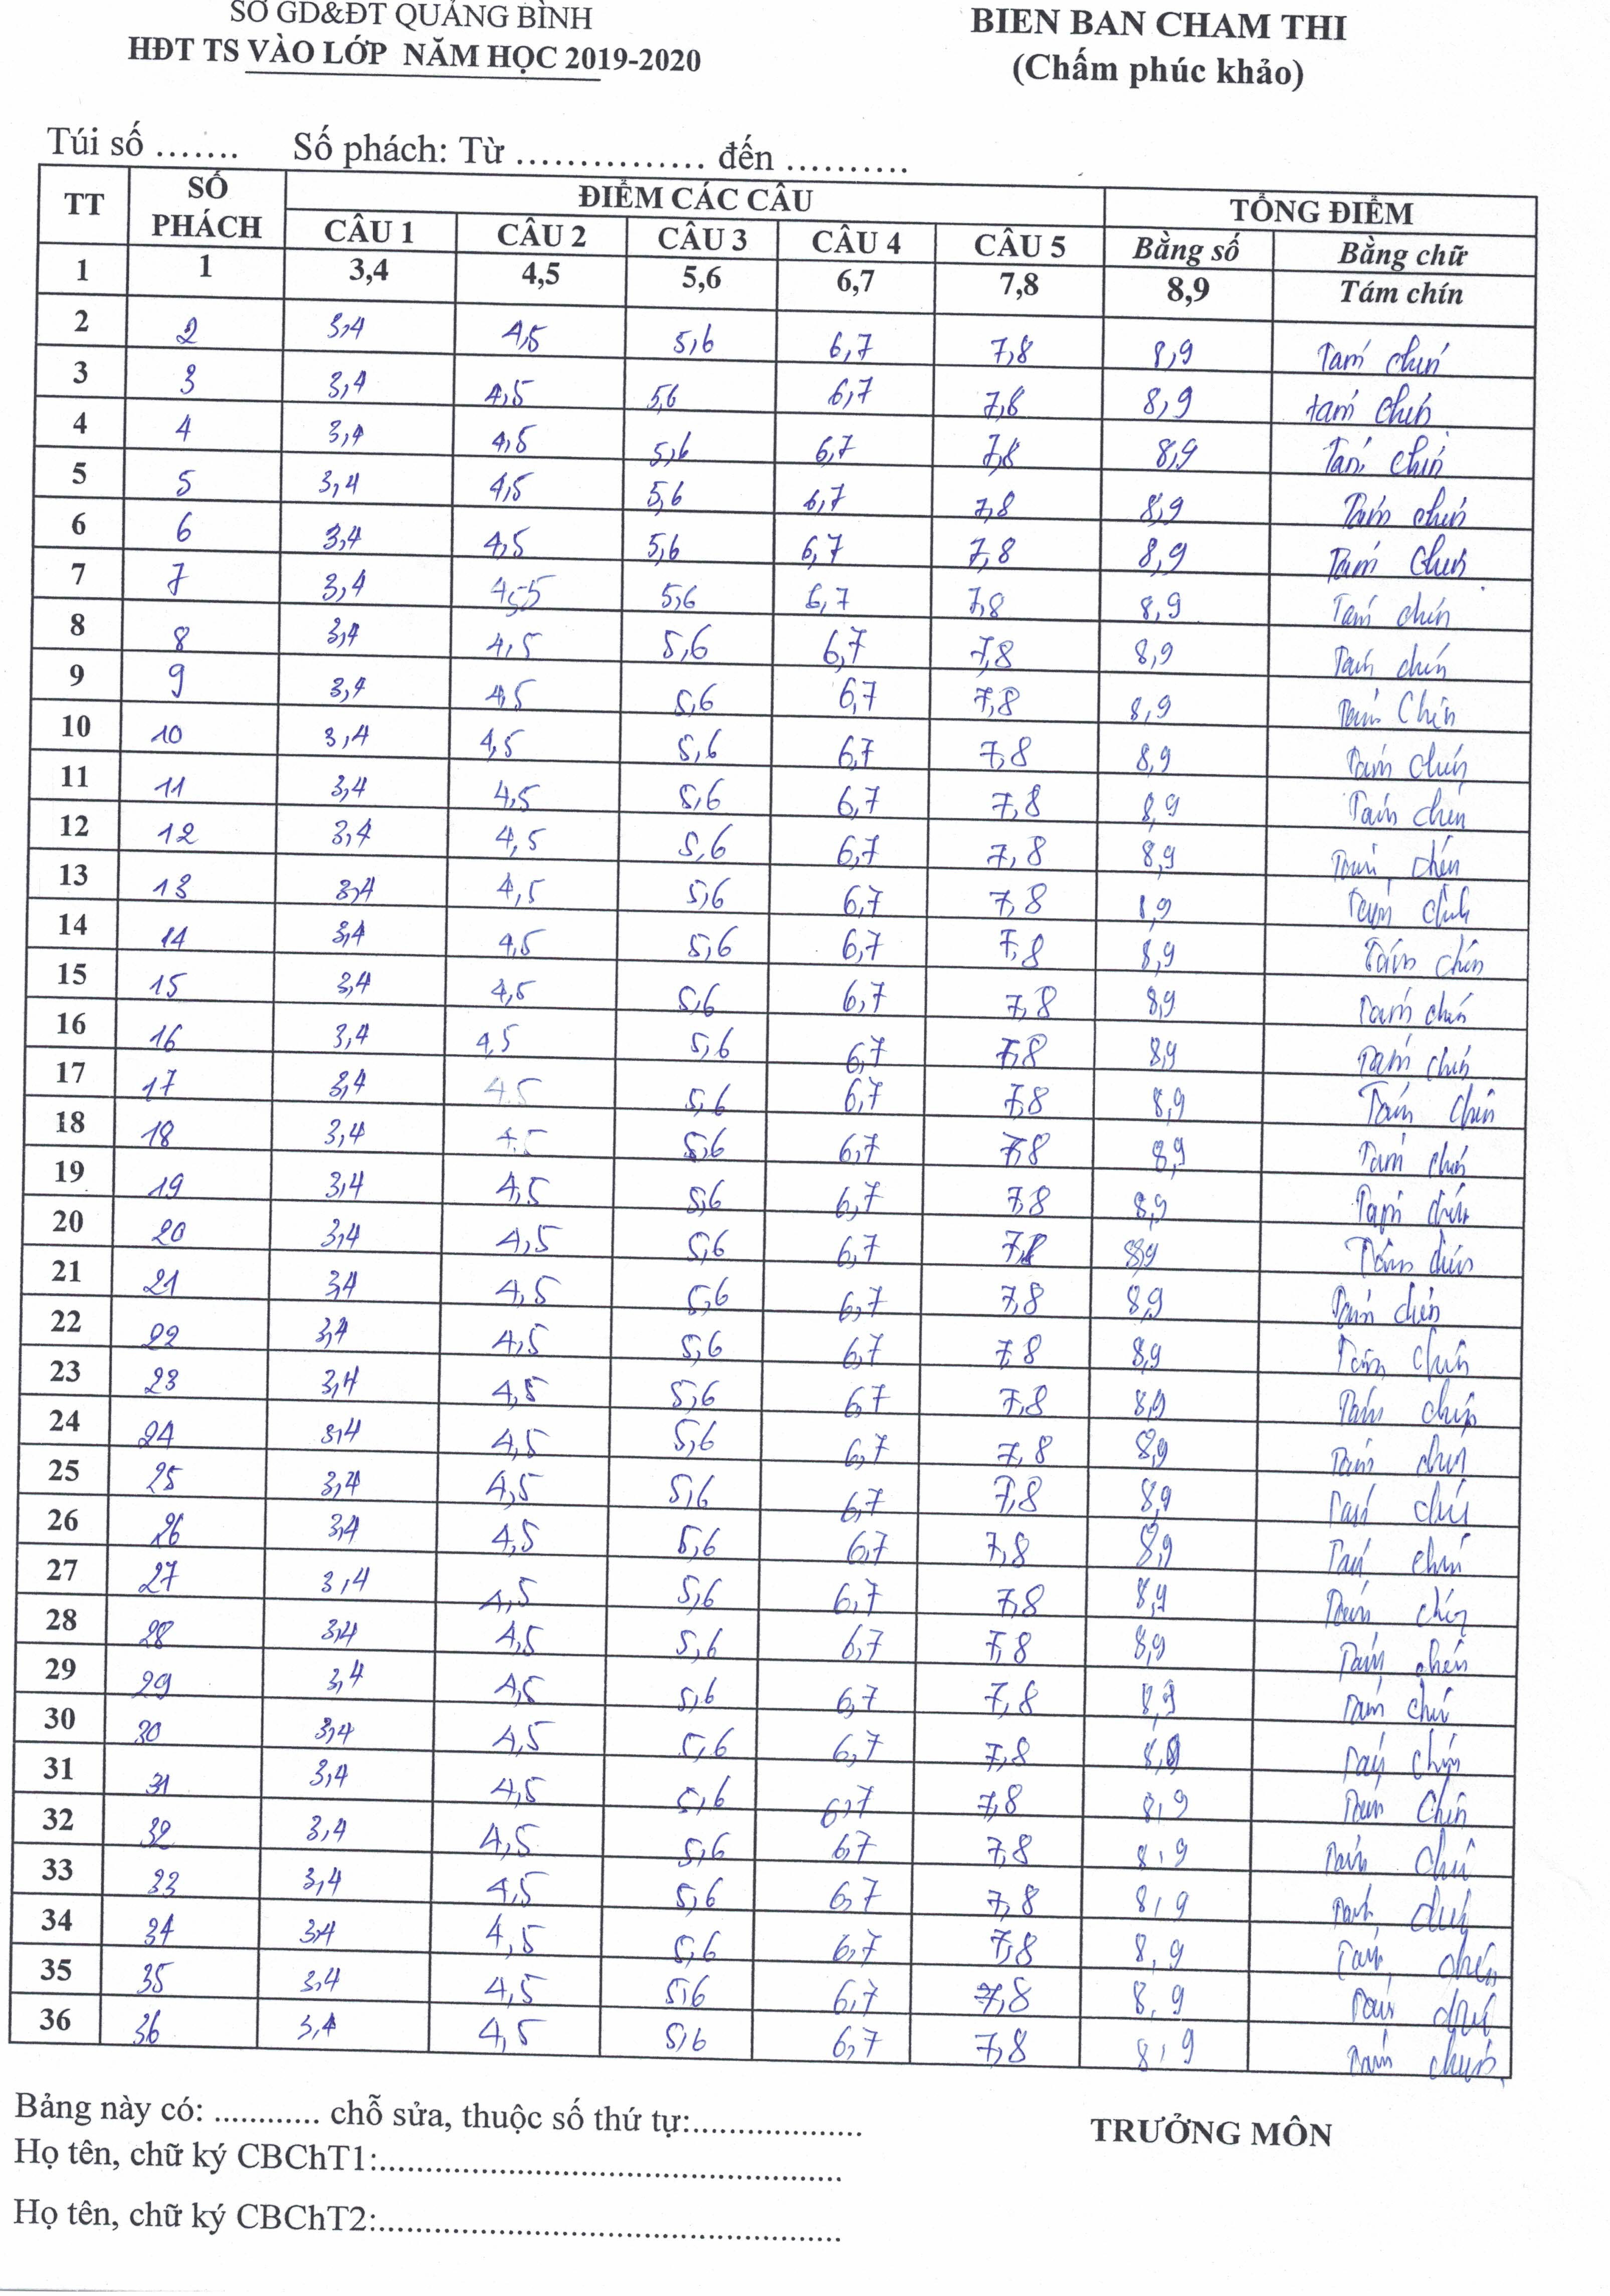 SỞ GD&ĐT QUẢNG BÌNH
HĐT TS VÀO LỚP NĂM HỌC 2019-2020
BIEN BAN CHAM THI
(Chấm phúc khảo)
Túi số ....... Số phách: Từ ............... đến ..........
TT SỐ PHÁCH ĐIỂM CÁC CÂU TỔNG ĐIỂM
CÂU 1 CÂU 2 CÂU 3 CÂU 4 CÂU 5 Bằng số Bằng chữ
1 1 3,4 4,5 5,6 6,7 7,8 8,9 Tám chín
2 2 3,4 4,5 5,6 6,7 7,8 8,9 Tám chín
3 3 3,4 4,5 5,6 6,7 7,8 8,9 tám chín
4 4 3,4 4,5 5,6 6,7 7,8 8,9 Tám chín
5 5 3,4 4,5 5,6 6,7 7,8 8,9 Tám chín
6 6 3,4 4,5 5,6 6,7 7,8 8,9 Tám chín
7 7 3,4 4,5 5,6 6,7 7,8 8,9 Tám chín
8 8 3,4 4,5 5,6 6,7 7,8 8,9 Tám chín
9 9 3,4 4,5 5,6 6,7 7,8 8,9 Tám Chín
10 10 3,4 4,5 5,6 6,7 7,8 8,9 Tám chín
11 11 3,4 4,5 5,6 6,7 7,8 8,9 Tám chín
12 12 3,4 4,5 5,6 6,7 7,8 8,9 Tám chín
13 13 3,4 4,5 5,6 6,7 7,8 8,9 Tám chín
14 14 3,4 4,5 5,6 6,7 7,8 8,9 Tám chín
15 15 3,4 4,5 5,6 6,7 7,8 8,9 Tám chín
16 16 3,4 4,5 5,6 6,7 7,8 8,9 Tám chín
17 17 3,4 4,5 5,6 6,7 7,8 8,9 Tám chín
18 18 3,4 4,5 5,6 6,7 7,8 8,9 Tám chín
19 19 3,4 4,5 5,6 6,7 7,8 8,9 Tám chín
20 20 3,4 4,5 5,6 6,7 7,8 8,9 Tám chín
21 21 3,4 4,5 5,6 6,7 7,8 8,9 Tám chín
22 22 3,4 4,5 5,6 6,7 7,8 8,9 Tám chín
23 23 3,4 4,5 5,6 6,7 7,8 8,9 Tám chín
24 24 3,4 4,5 5,6 6,7 7,8 8,9 Tám chín
25 25 3,4 4,5 5,6 6,7 7,8 8,9 Tám chín
26 26 3,4 4,5 5,6 6,7 7,8 8,9 Tám chín
27 27 3,4 4,5 5,6 6,7 7,8 8,9 Tám chín
28 28 3,4 4,5 5,6 6,7 7,8 8,9 Tám chín
29 29 3,4 4,5 5,6 6,7 7,8 8,9 Tám chín
30 30 3,4 4,5 5,6 6,7 7,8 8,9 Tám chín
31 31 3,4 4,5 5,6 6,7 7,8 8,9 Tám Chín
32 32 3,4 4,5 5,6 6,7 7,8 8,9 Tám chín
33 33 3,4 4,5 5,6 6,7 7,8 8,9 Tám chín
34 34 3,4 4,5 5,6 6,7 7,8 8,9 Tám chín
35 35 3,4 4,5 5,6 6,7 7,8 8,9 Tám chín
36 36 3,4 4,5 5,6 6,7 7,8 8,9 Tám chín
Bảng này có: ............ chỗ sửa, thuộc số thứ tự:...................
TRƯỞNG MÔN
Họ tên, chữ ký CBChT1:..................................................
Họ tên, chữ ký CBChT2:..................................................